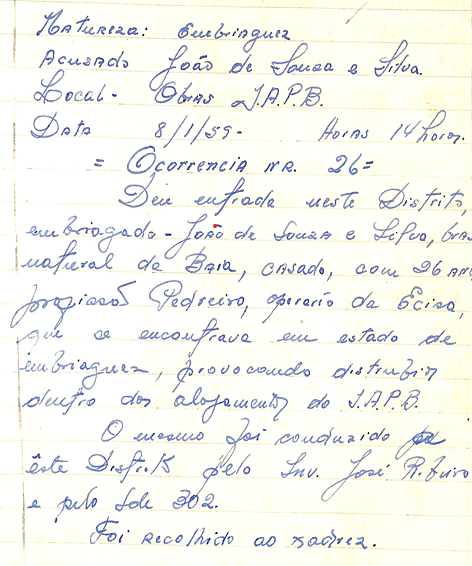 Natureza: Embriaguez
Acusado João de Souza e Silva.
Local - Obras I.A.P.B.
Data 8/1/59- Horas 14 horas.
= Ocorrencia nr. 26=
Deu entrada neste Distrito,
embriagado - João de Souza e Silva, bras
natural da Baia, casado, com 26 ano
profissão Pedreiro, operario da Ecisa,
que se encontrava em estado de
embriaguez, provocando disturbios
dentro dos alojamentos do I.A.P.B.
O mesmo foi conduzido
êste Distrito pelo Inv. José Ribeiro
e pelo Sde 302.
Foi recolhido ao xadrez.